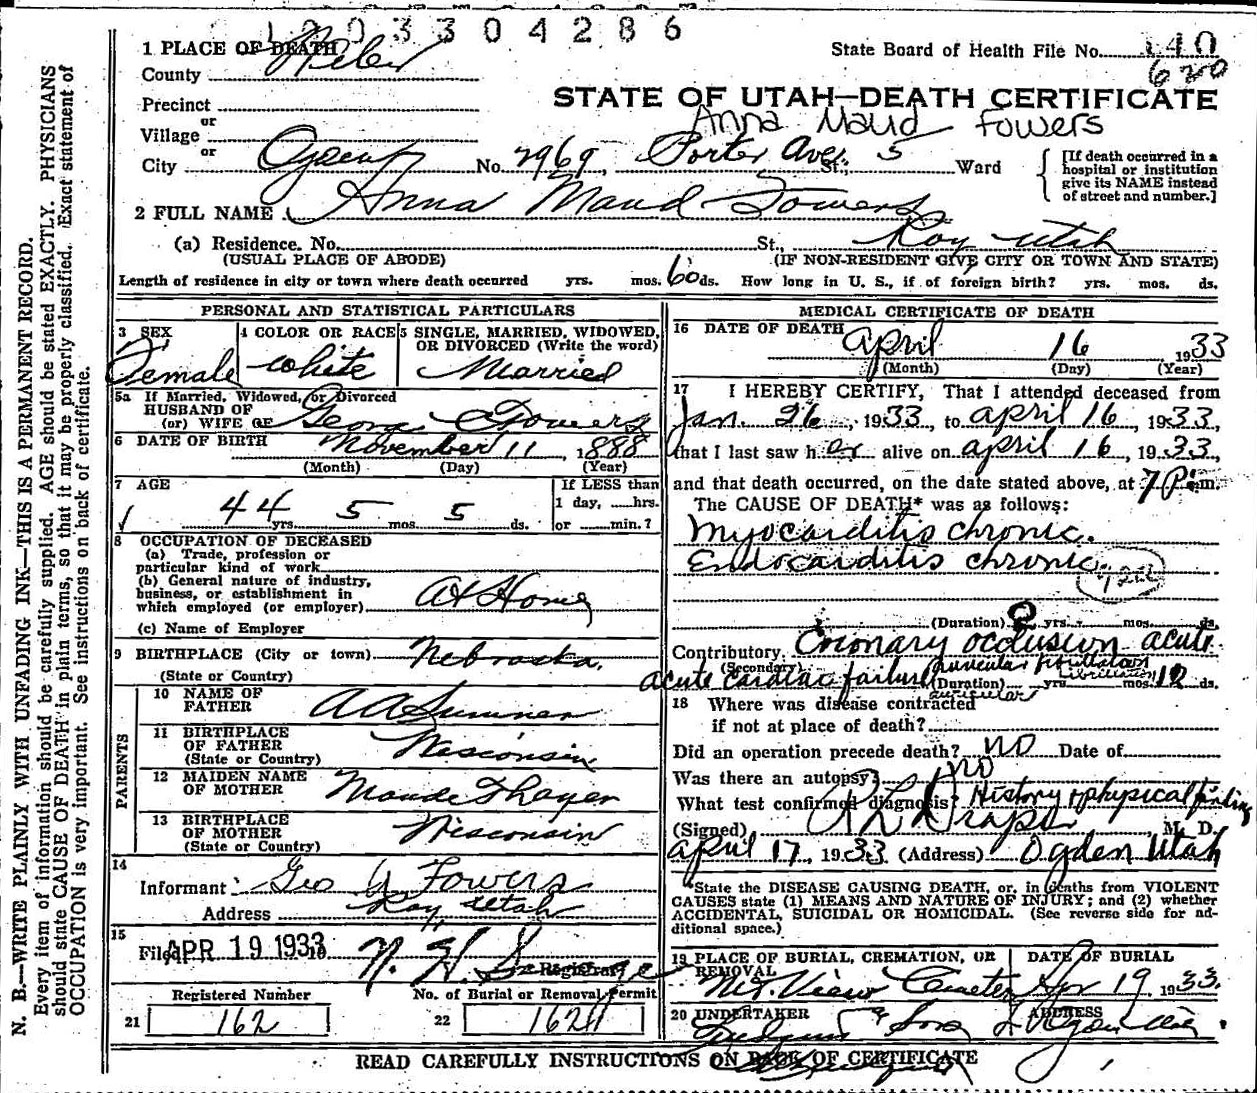 1 2 0 3 3 0 4 2 8 6
1 PLACE OF DEATH
State Board of Health File No. 140
620
County Weber
STATE OF UTAH—DEATH CERTIFICATE
Precinct
or
Anna Maud Fowers
Village
or
City Ogden No. 2969, Porter Ave. St., 5 Ward
[If death occurred in a hospital or institution give its NAME instead of street and number.]
2 FULL NAME Anna Maud Fowers
(a) Residence. No. St., Roy Utah
(USUAL PLACE OF ABODE) (IF NON-RESIDENT GIVE CITY OR TOWN AND STATE)
Length of residence in city or town where death occurred yrs. mos. 60 ds. How long in U. S., if of foreign birth? yrs. mos. ds.
PERSONAL AND STATISTICAL PARTICULARS
3 SEX Female
4 COLOR OR RACE white
5 SINGLE, MARRIED, WIDOWED, OR DIVORCED (Write the word) Married
5a If Married, Widowed, or Divorced
HUSBAND OF
(or) WIFE OF George Fowers
6 DATE OF BIRTH November 11, 1888
(Month) (Day) (Year)
7 AGE
44 yrs. 5 mos. 5 ds.
If LESS than 1 day, hrs. or min.?
8 OCCUPATION OF DECEASED
(a) Trade, profession or particular kind of work
(b) General nature of industry, business, or establishment in which employed (or employer) At Home
(c) Name of Employer
9 BIRTHPLACE (City or town) Nebraska
(State or Country)
PARENTS
10 NAME OF FATHER A A Sumner
11 BIRTHPLACE OF FATHER Wisconsin
(State or Country)
12 MAIDEN NAME OF MOTHER Maude Thayer
13 BIRTHPLACE OF MOTHER Wisconsin
(State or Country)
14
Informant Geo A Fowers
Address Roy, Utah
15
Filed APR 19 1933
Registrar
Registered Number No. of Burial or Removal Permit
21 162 22
MEDICAL CERTIFICATE OF DEATH
16 DATE OF DEATH
April 16, 1933
(Month) (Day) (Year)
17 I HEREBY CERTIFY, That I attended deceased from
Jan. 26, 1933, to april 16, 1933,
that I last saw her alive on april 16, 1933,
and that death occurred, on the date stated above, at 7 P. m.
The CAUSE OF DEATH* was as follows:
Myocarditis chronic.
Endocarditis chronic.
(Duration) 2 yrs. mos. ds.
Contributory. Coronary occlusion acute
(Secondary)
acute cardiac failure auricular fibrillation
(Duration) yrs. mos. 12 ds.
auricular fibrillation
18 Where was disease contracted
if not at place of death?
Did an operation precede death? NO Date of
Was there an autopsy? NO
What test confirmed diagnosis? History & physical finding
(Signed) R L Draper, M. D.
april 17, 1933 (Address) Ogden Utah
*State the DISEASE CAUSING DEATH, or, in deaths from VIOLENT CAUSES state (1) MEANS AND NATURE OF INJURY; and (2) whether ACCIDENTAL, SUICIDAL OR HOMICIDAL. (See reverse side for additional space.)
19 PLACE OF BURIAL, CREMATION, OR REMOVAL
Mt. View Cemetery
DATE OF BURIAL
Apr 19, 1933.
20 UNDERTAKER & Sons
ADDRESS Ogden Utah
READ CAREFULLY INSTRUCTIONS ON BACK OF CERTIFICATE
N. B.—WRITE PLAINLY WITH UNFADING INK—THIS IS A PERMANENT RECORD.
Every item of information should be carefully supplied. AGE should be stated EXACTLY. PHYSICIANS
should state CAUSE OF DEATH in plain terms, so that it may be properly classified. Exact statement of
OCCUPATION is very important. See instructions on back of certificate.